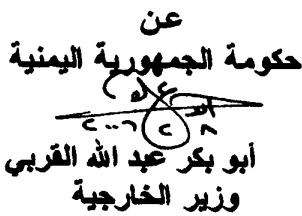 عن
حكومة الجمهورية اليمنية
أبو بكر عبد الله القربي
وزير الخارجية